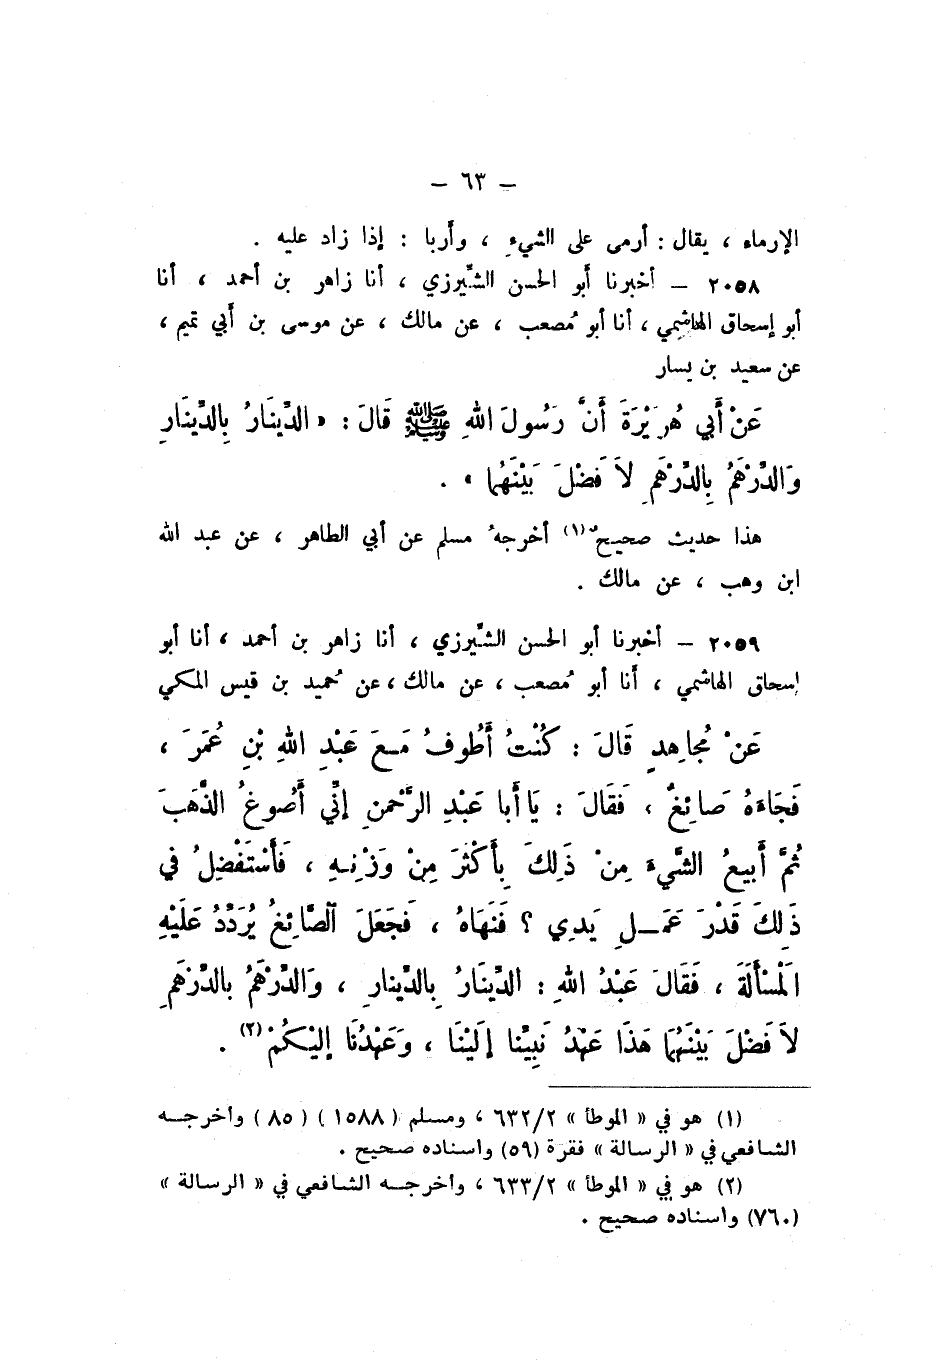 — ٦٣ —
الإرماء ، يقال : أرمى على الشيءِ ، وأربا : إذا زاد عليه .
٢٠٥٨ — أخبرنا أبو الحسن الشِّيرزي ، أنا زاهر بن أحمد ، أنا
أبو إسحاق الهاشِمي ، أنا أبو مُصعب ، عن مالك ، عن موسى بن أبي تميم ،
عن سعيد بن يسار
عَنْ أَبي هُرَيْرَةَ أَنَّ رَسُولَ اللهِ ﷺ قَالَ : « الدِّينَارُ بِالدِّينَارِ
وَالدِّرْهَمُ بِالدِّرْهَمِ لاَ فَضْلَ بَيْنَهُما » .
هذا حديث صحيحٌ (١) أخرجهُ مسلم عن أبي الطاهر ، عن عبد الله
ابن وهب ، عن مالك .
٢٠٥٩ — أخبرنا أبو الحسن الشِّيرزي ، أنا زاهر بن أحمد ، أنا أبو
إسحاق الهاشمي ، أنا أبو مُصعب ، عن مالك ، عن حُميد بن قيس المكي
عَنْ مُجاهِدٍ قَالَ : كُنْتُ أَطُوفُ مَعَ عَبْدِ اللهِ بْنِ عُمَرَ ،
فَجَاءَهُ صَائِغٌ ، فَقَالَ : يَا أَبا عَبْدِ الرَّحْمنِ إِنِّي أَصُوغُ الذَّهَبَ
ثُمَّ أَبيعُ الشَّيءَ مِنْ ذَلِكَ بِأَكْثَرَ مِنْ وَزْنِهِ ، فَأَسْتَفْضِلُ في
ذَلِكَ قَدْرَ عَمَلِ يَدِي ؟ فَنَهَاهُ ، فَجَعَلَ الصَّائِغُ يُرَدِّدُ عَلَيْهِ
المَسْأَلَةَ ، فَقَالَ عَبْدُ اللهِ : الدِّينَارُ بِالدِّينارِ ، وَالدِّرْهَمُ بالدِّرْهَمِ
لاَ فَضْلَ بَيْنَهُمَا هَذَا عَهْدُ نَبِيِّنا إلَيْنَا ، وعَهْدُنَا إليْكُمْ (٢) .
(١) هو في « الموطأ » ٦٣٢/٢ ، ومسلم ( ١٥٨٨ ) ( ٨٥ ) وأخرجه
الشافعي في « الرسالة » فقرة (٥٩) واسناده صحيح .
(٢) هو في « الموطأ » ٦٣٣/٢ ، وأخرجه الشافعي في « الرسالة »
(٧٦٠) واسناده صحيح .